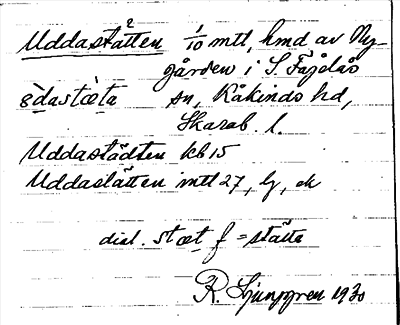 Uddastätten 1/10 mtl, hmd av Ny-
gården i S. Fågelås
ɞ̀dastæ̀ta sn, Kåkinds hd,
Skarab. l.
Uddastädten kb 15
Uddastätten mtl 27, lg, ek
dial. stæt f = stätta
R. Ljunggren 1930